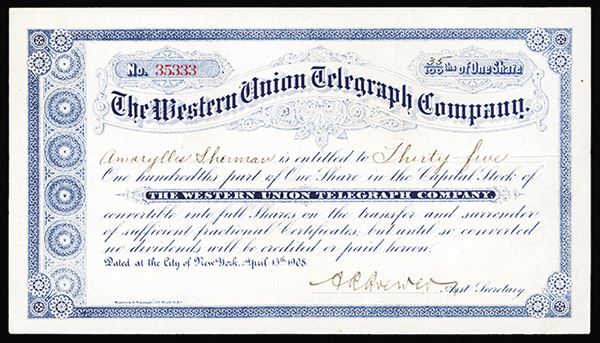 No. 35333
35/100ths of One Share
The Western Union Telegraph Company.
Amaryllis Sherman is entitled to Thirty-five
One hundredths part of One Share in the Capital Stock of
THE WESTERN UNION TELEGRAPH COMPANY,
convertible into full Shares on the transfer and surrender
of sufficient fractional Certificates, but until so converted
no dividends will be credited or paid hereon.
Dated at the City of New York, April 15th 1908.
Asst. Secretary